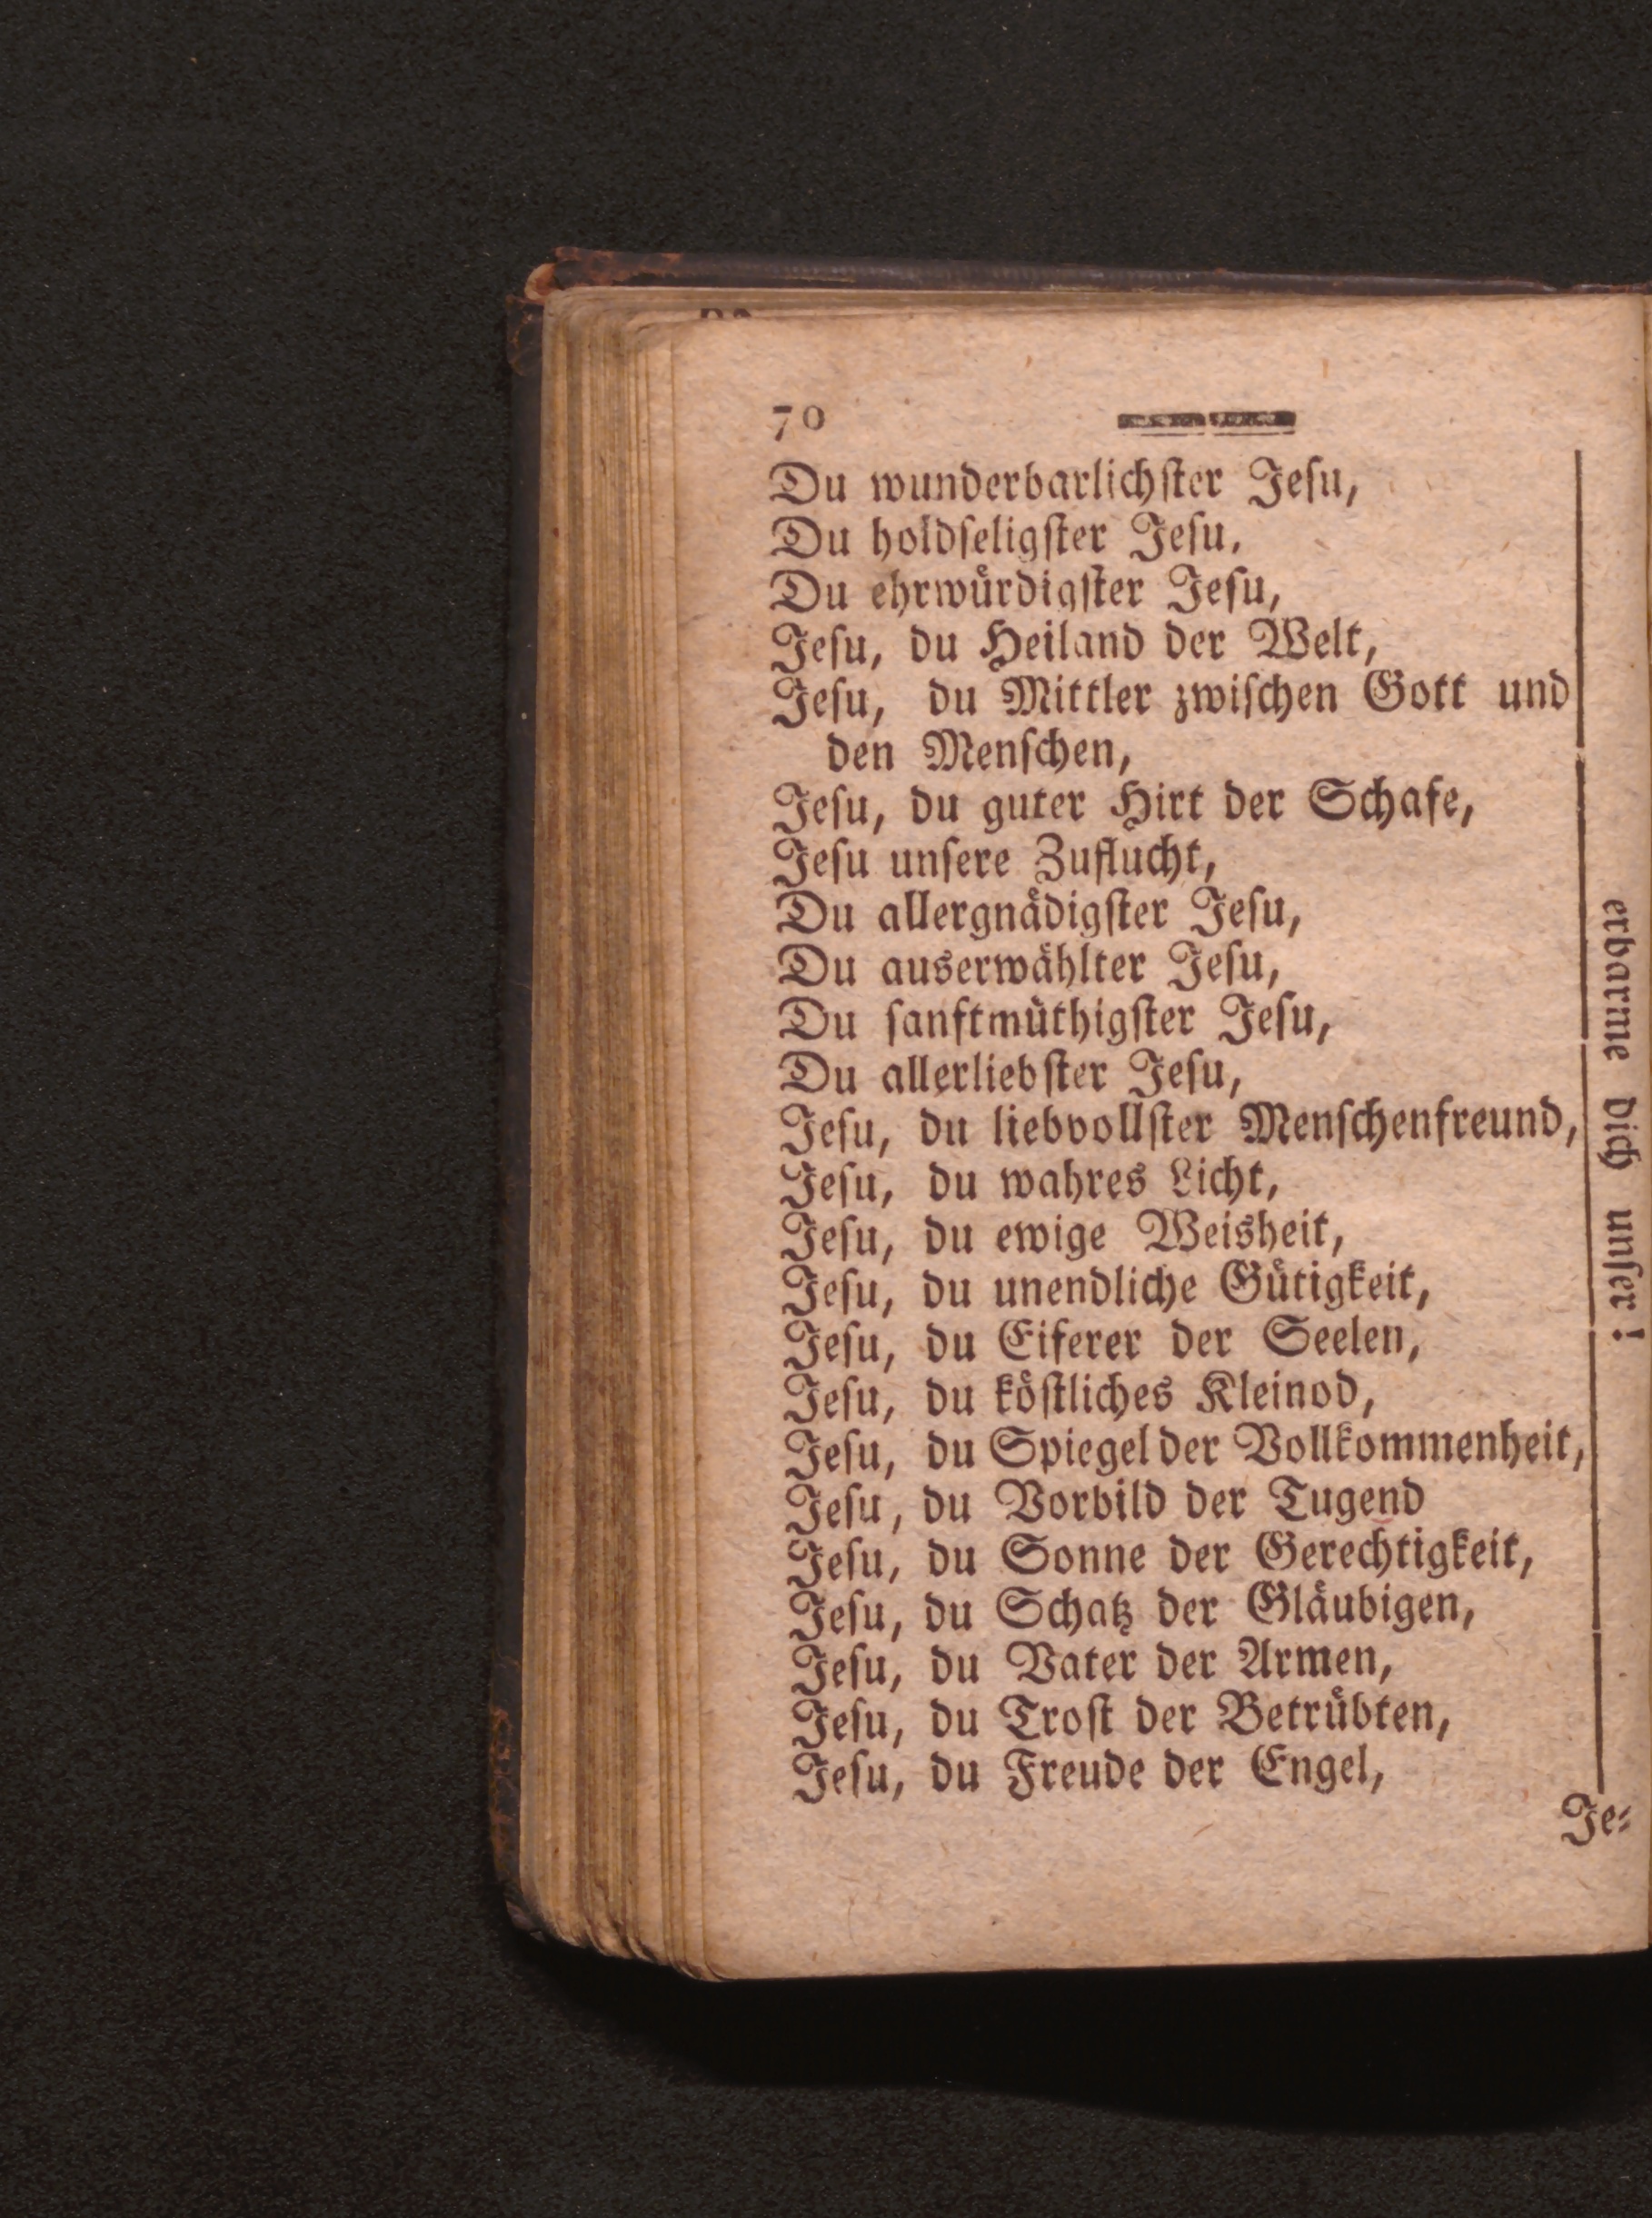 70
Du wunderbarlichſter Jeſu,
Du holdſeligſter Jeſu,
Du ehrwuͤrdigſter Jeſu,
Jeſu, du Heiland der Welt,
Jeſu, du Mittler zwiſchen Gott und
den Menſchen,
Jeſu, du guter Hirt der Schafe,
Jeſu unſere Zuflucht,
Du allergnaͤdigſter Jeſu,
Du auserwaͤhlter Jeſu,
Du ſanftmuͤthigſter Jeſu,
Du allerliebſter Jeſu,
Jeſu, du liebvollſter Menſchenfreund,
Jeſu, du wahres Licht,
Jeſu, du ewige Weisheit,
Jeſu, du unendliche Guͤtigkeit,
Jeſu, du Eiferer der Seelen,
Jeſu, du koͤſtliches Kleinod,
Jeſu, du Spiegel der Vollkommenheit,
Jeſu, du Vorbild der Tugend
Jeſu, du Sonne der Gerechtigkeit,
Jeſu, du Schatz der Glaͤubigen,
Jeſu, du Vater der Armen,
Jeſu, du Troſt der Betruͤbten,
Jeſu, du Freude der Engel,
erbarme dich unſer!
Je⸗